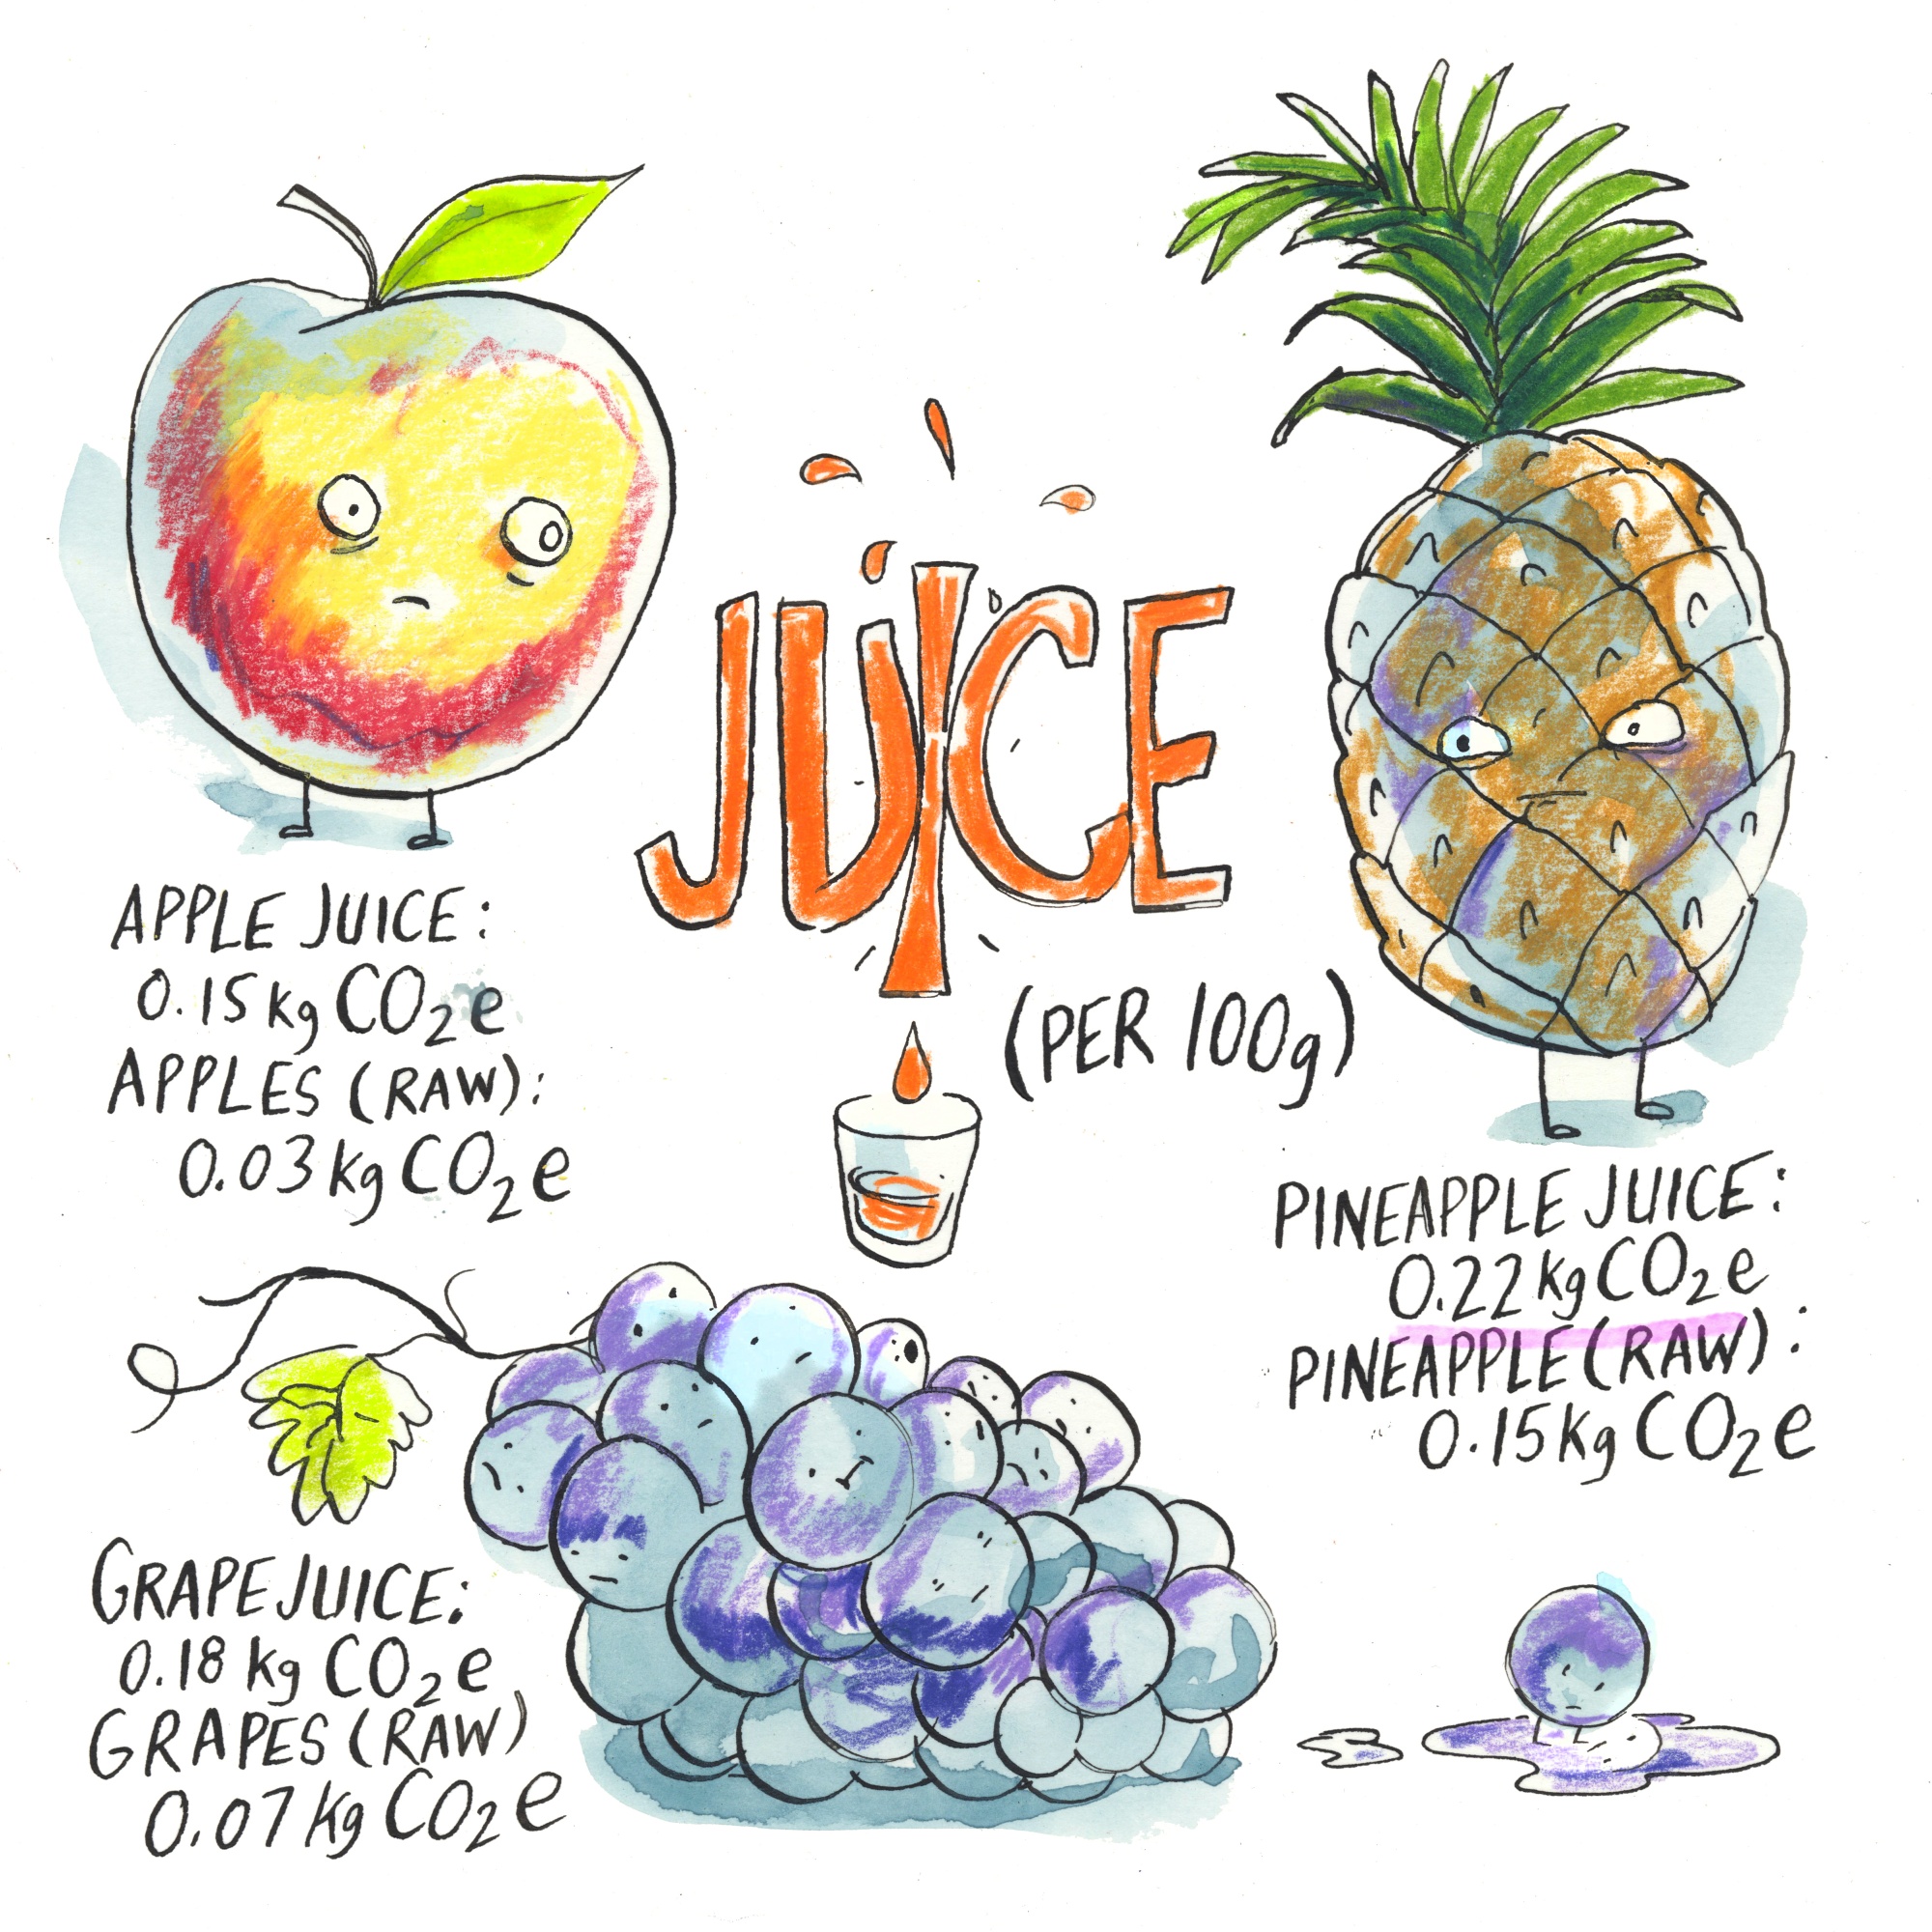 JUICE
(PER 100g)
APPLE JUICE:
0.15 kg CO₂e
APPLES (RAW):
0.03 kg CO₂e
PINEAPPLE JUICE:
0.22 kg CO₂e
PINEAPPLE (RAW):
0.15 kg CO₂e
GRAPE JUICE:
0.18 kg CO₂e
GRAPES (RAW)
0.07 kg CO₂e